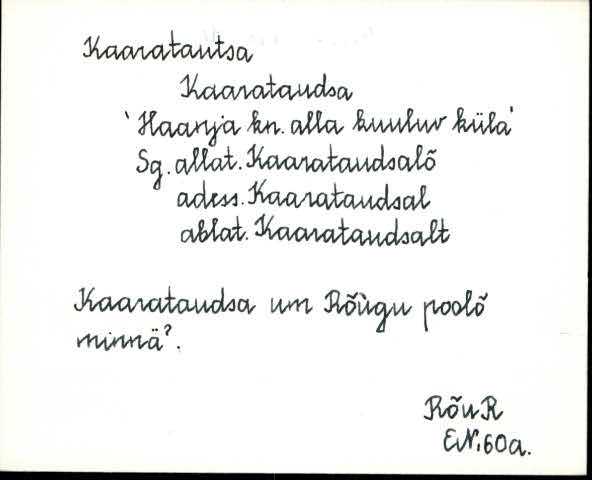 Kaaratautsa
Kaarataudsa
'Haanja kn. alla kuuluv küla'
Sg. allat. Kaarataudsalõ
adess. Kaarataudsal
ablat. Kaarataudsalt
Kaarataudsa um Rõùgu poolõ
minnäˀ.
RõuR
EN, 60a.